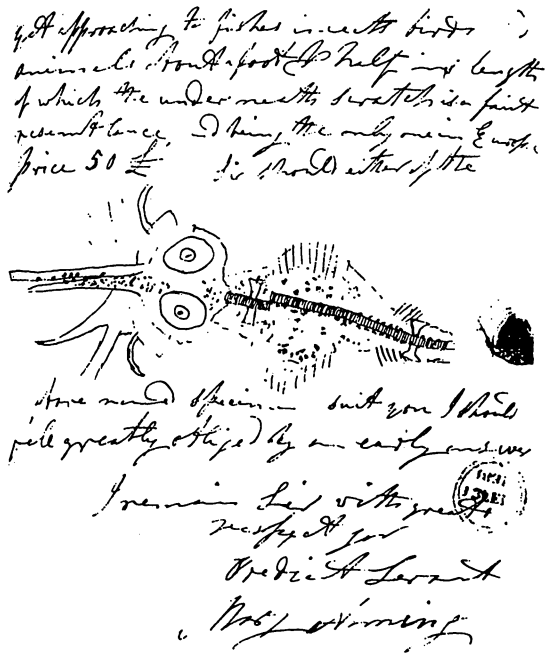 yet approaching to fishes insects birds
animals about a foot & half in length
of which the underneath scratch is a faint
resemblance, and being the only one in Europe
price 50 £ Sir should either of the
above named specimen suit you I should
feel greatly obliged by an early answer
I remain Sir with great
respect your
Obedient Servant
Mary Anning